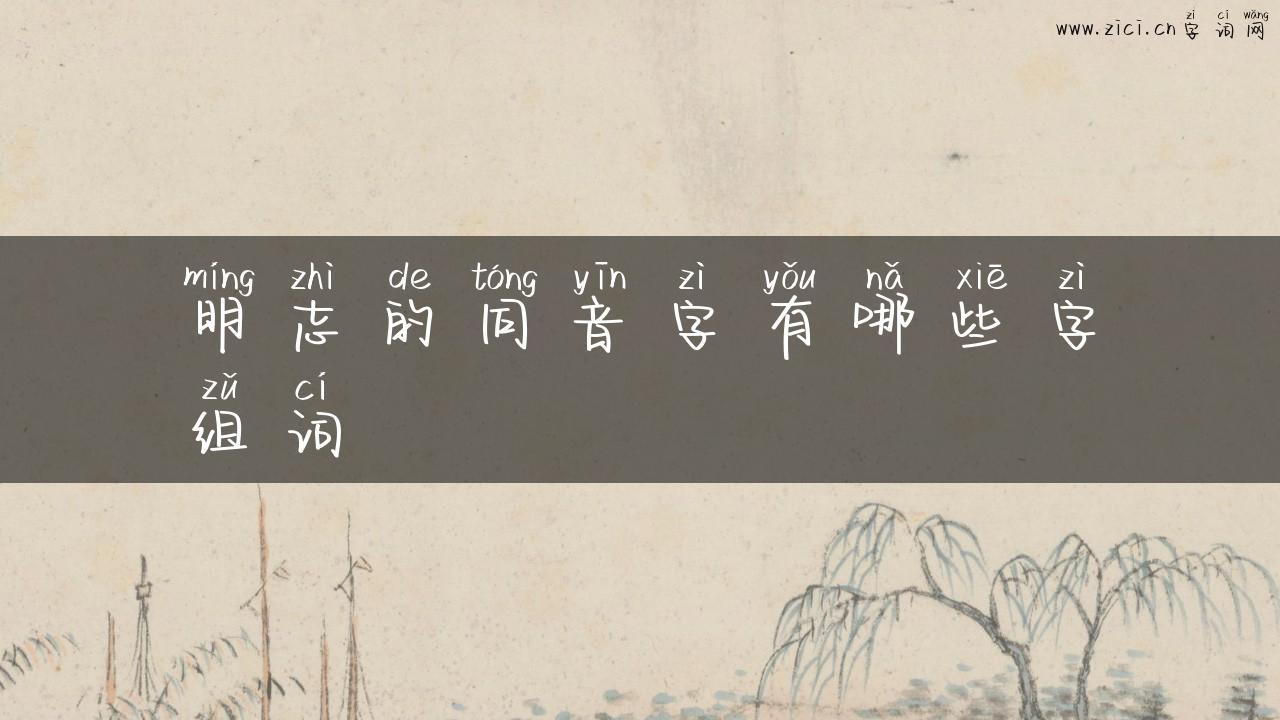 zì cí wǎng
www.zici.cn 字词网
míng zhì de tóng yīn zì yǒu nǎ xiē zì
明志的同音字有哪些字
zǔ cí
组词